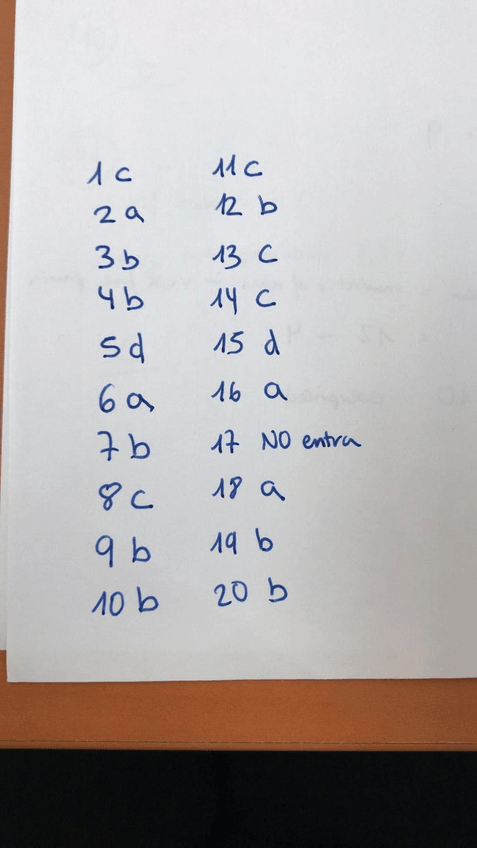 1 c
2 a
3 b
4 b
5 d
6 a
7 b
8 c
9 b
10 b
11 c
12 b
13 c
14 c
15 d
16 a
17 NO entra
18 a
19 b
20 b